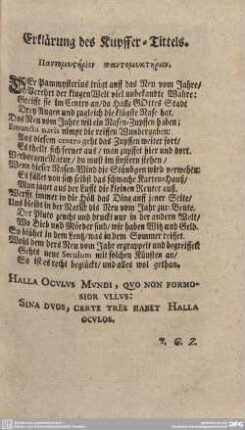 Erklärung des Kupffer-Tittels.
Πανπομυςήριον παντομυκτήριον.
DEr Pammysterius trägt auff das Neu vom Jahre/
Verehrt der klugen Welt viel unbekandte Wahre:
Greifft sie im Centro an/da Halle GOttes Stadt
Drey Augen und zugleich die klügste Nase hat.
Das Neu vom Jahre wil ein Nasen-Zupffen haben:
Emuncta naris nimpt die reiffen Wundergaben:
Aus diesem centro geht das Zupffen weiter fort/
Es theilt sich ferner aus / man zupffet hier und dort.
Verborgene Natur/ du must im finstern stehen/
Wenn dieser Nasen-Wind die Stündgen wird verwehen:
Es fället von sich selbst das schwache Karten-Hauß/
Man jaget aus der Lufft die kleinen Reuter auß.
Werfft immer in die Höll das Ding auff jener Seite/
Und bleibt in der Neu vom Jahr zur Beute.
Der Pluto zeucht und druckt nur in der andern Welt/
Wo Dieb und Mörder sind/ wir haben Witz und Geld.
So blühet in dem Lentz/was in dem Sommer reiffet.
Wohl dem ders Neu vom Jahr ergruppelt und begreiffet
Gehts neue Seculum mit solchen Künsten an/
So ist es recht beglückt/ und alles wol gethan.
HALLA OCVLVS MVNDI, QVO NON FORMO-
SIOR VLLVS:
SINA DVOS, CERTE TRES HABET HALLA
OCVLOS.
G. Z.